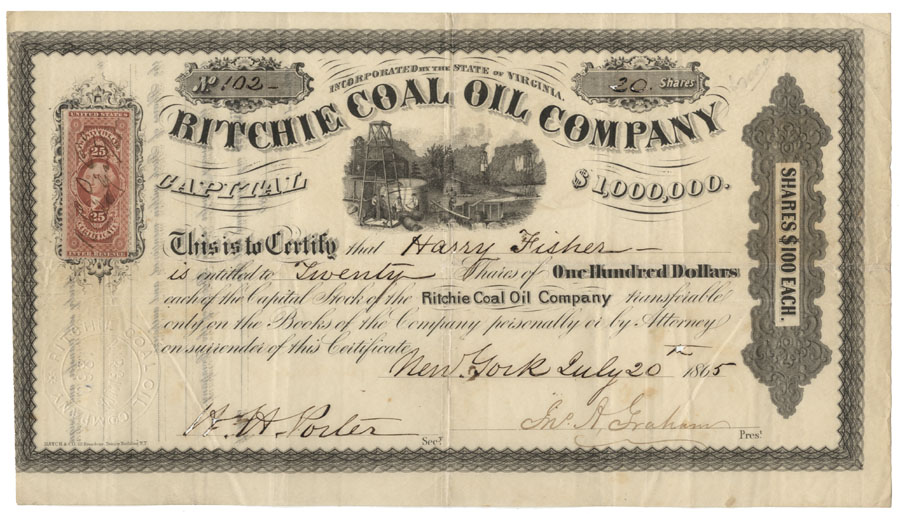 No. 102
20. Shares
INCORPORATED BY THE STATE OF VIRGINIA.
RITCHIE COAL OIL COMPANY
CAPITAL $1,000,000.
UNITED STATES
25 25
CERTIFICATE
INTER. REVENUE
This is to Certify that Harry Fisher
is entitled to Twenty Shares of One Hundred Dollars
each of the Capital Stock of the Ritchie Coal Oil Company transferable
only on the Books of the Company personally or by Attorney
on surrender of this Certificate
New York July 20th 1865
W. H. Porter Secy.
Jno. A. Graham Prest
SHARES $100 EACH.
RITCHIE COAL OIL COMPANY